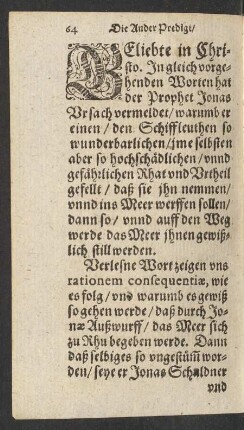 64 Die Ander Predigt/
BEliebte in Chri-
sto. In gleich vorge-
henden Worten hat
der Prophet Jonas
Vrsach vermeldet/ warumb er
einen/ den Schiffleuthen so
wunderbarlichen/ jme selbsten
aber so hochschädlichen/ vnnd
gefährlichen Rhat vnd Vrtheil
gefellt/ daß sie jhn nemmen/
vnnd ins Meer werffen sollen/
dann so/ vnnd auff den Weg
werde das Meer jhnen gewiß-
lich still werden.
Verlesne Wort zeigen vns
rationem consequentiæ, wie
es folg/ vnd warumb es gewiß
so gehen werde/ daß durch Jo-
næ Außwurff/ das Meer sich
zu Rhu begeben werde. Dann
daß selbiges so vngestümm wor-
den/ seye er Jonas Schuldner
vnd